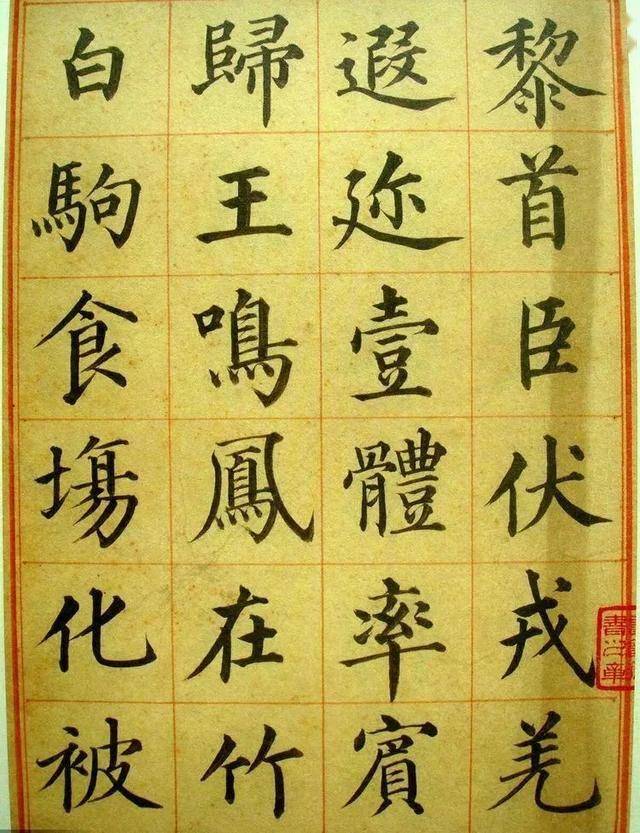 黎首臣伏戎羌
遐迩壹體率賓
歸王鳴鳳在竹
白駒食塲化被